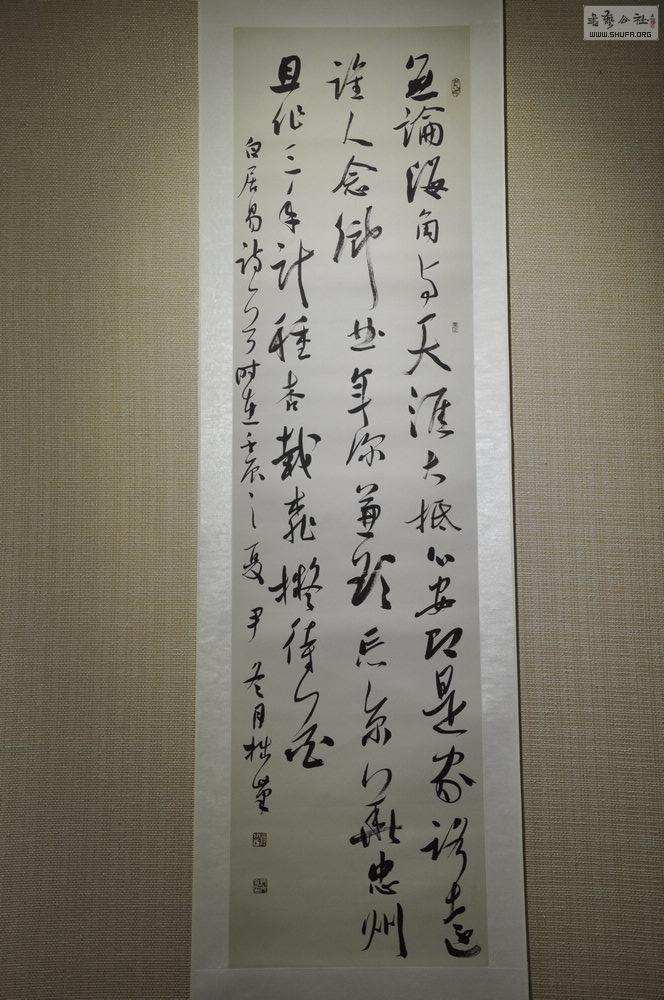 無論海角与天涯大抵心安即是家路遠
誰人念鄉曲年深兼欲忘京華忠州
且作三年計種杏栽桃擬待花
白居易詩一首时在壬辰之夏尹冬月拙筆
書藝公社
WWW.SHUFA.ORG